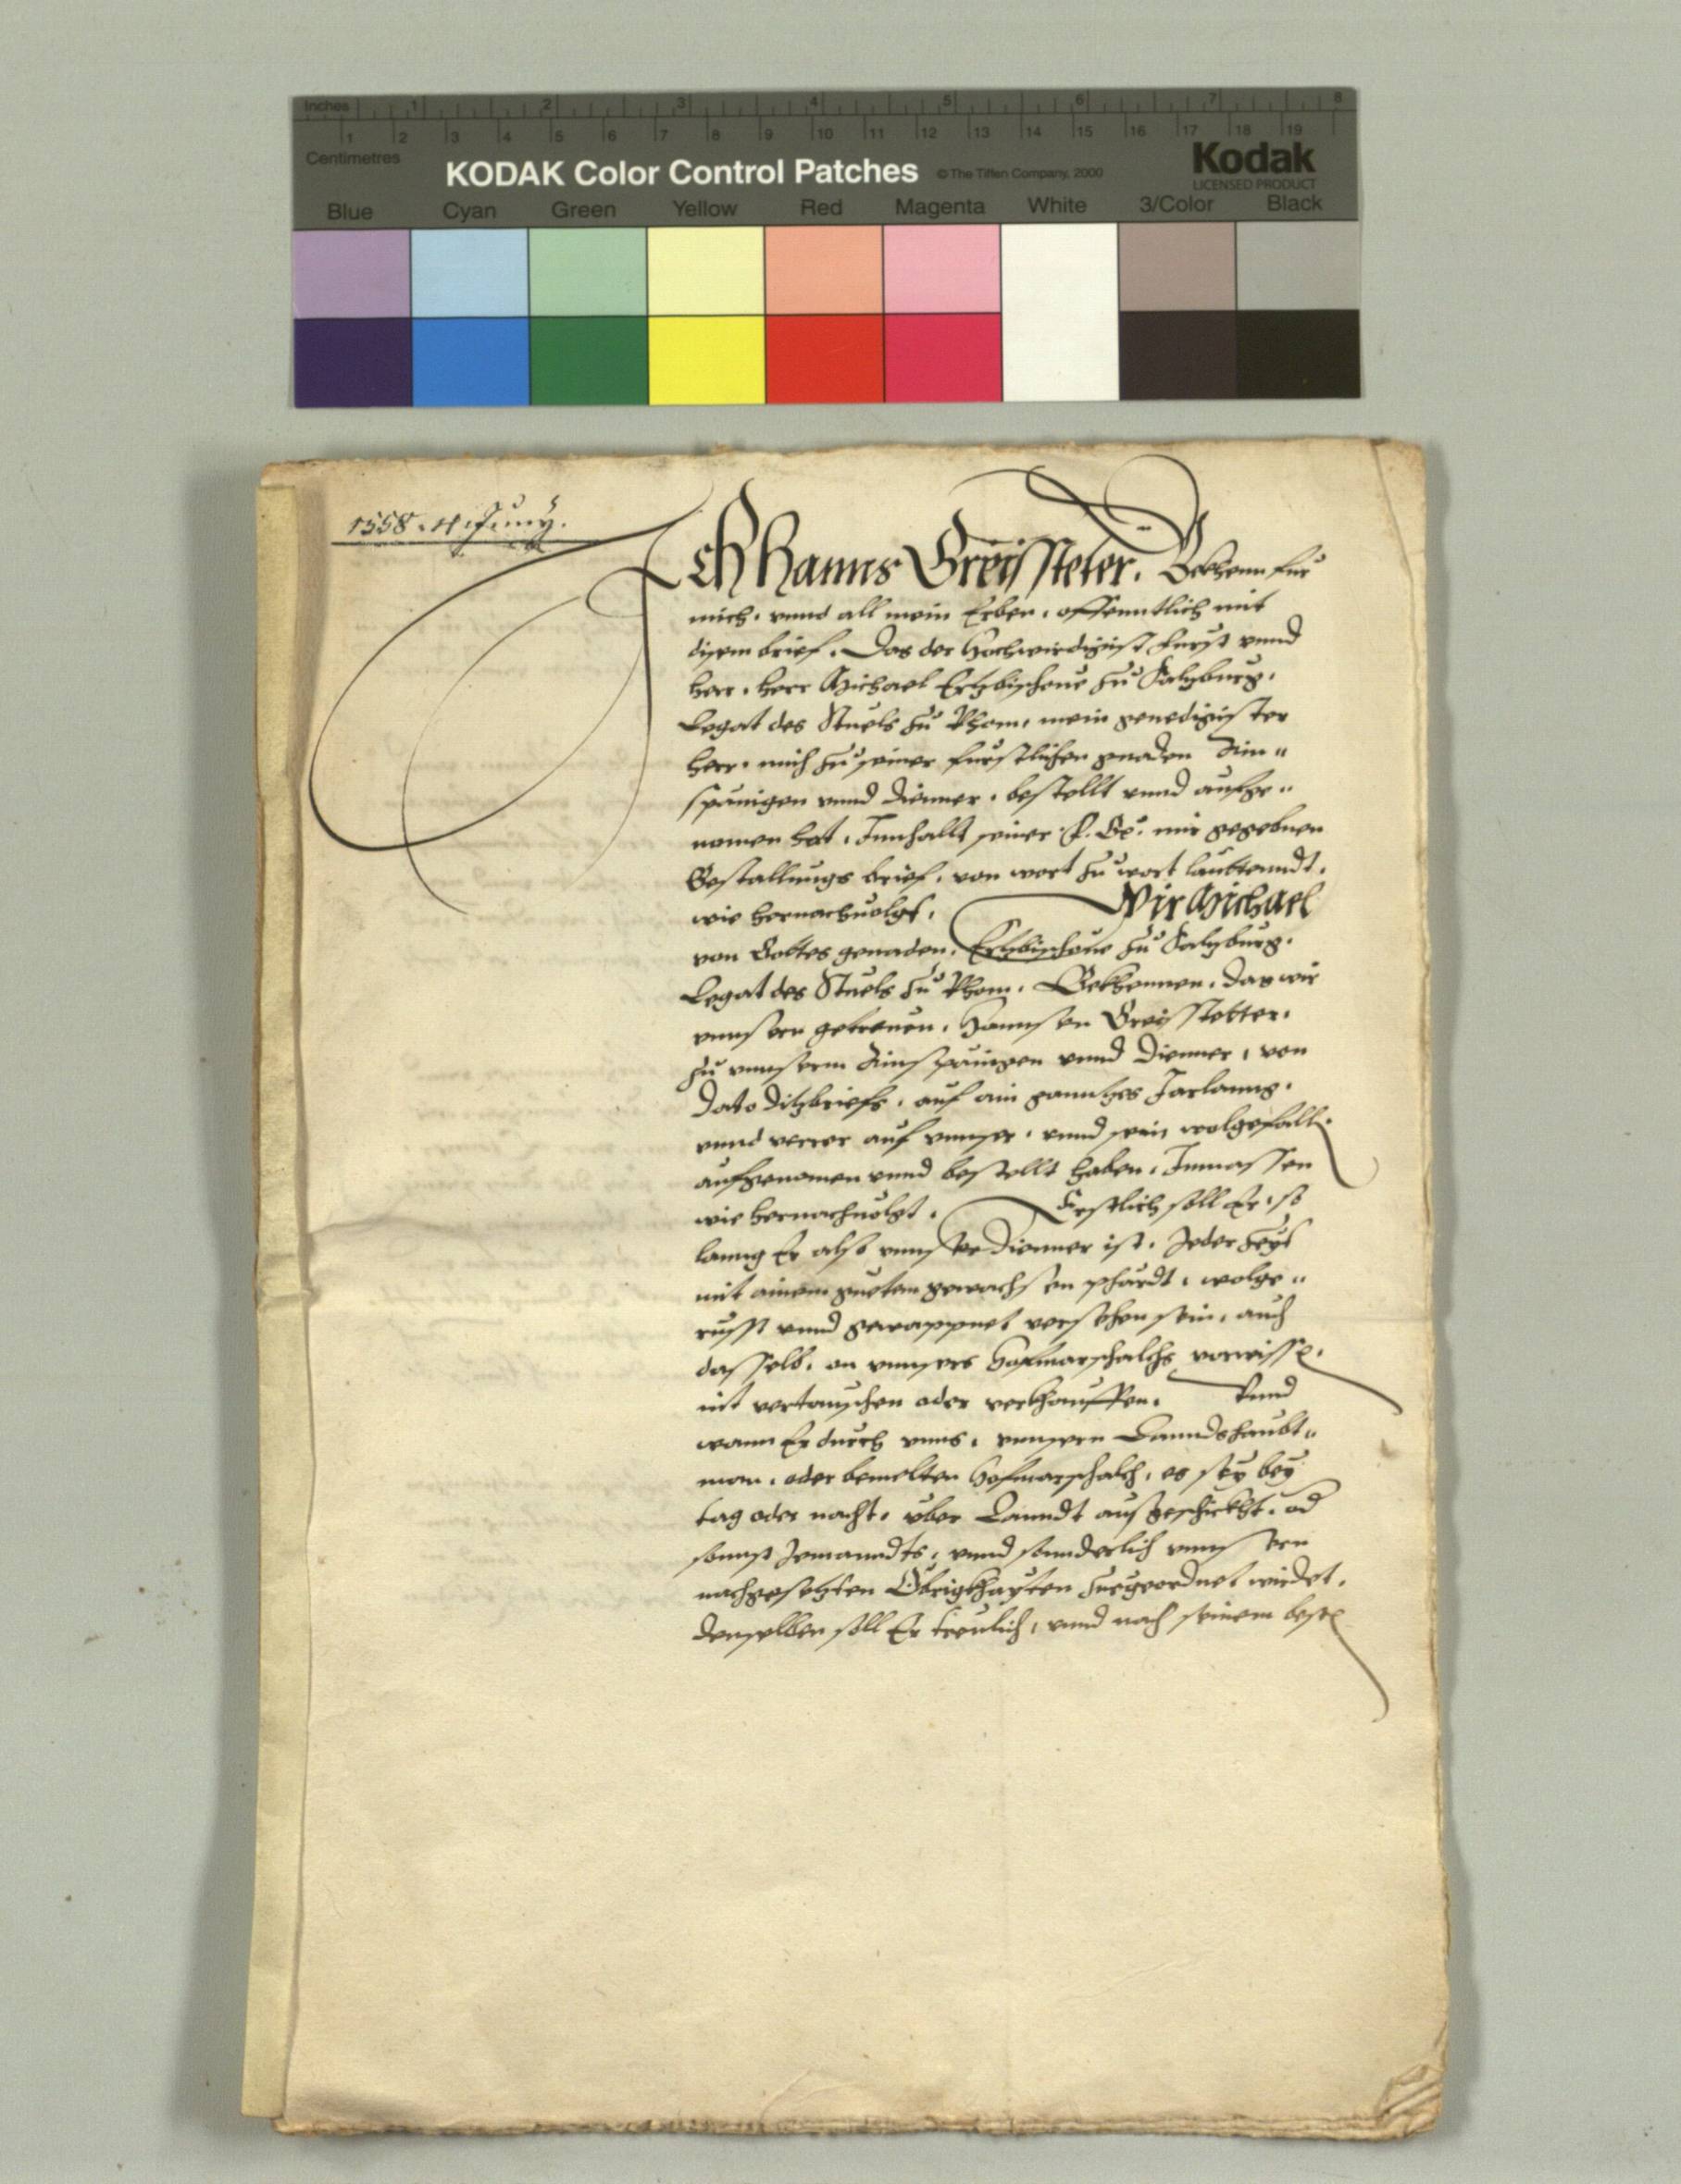 Inches 1 2 3 4 5 6 7 8
1 2 3 4 5 6 7 8 9 10 11 12 13 14 15 16 17 18 19
Centimetres
KODAK Color Control Patches © The Tiffen Company, 2000
Kodak
LICENSED PRODUCT
Blue Cyan Green Yellow Red Magenta White 3/Color Black
1558. 4. Juny.
Ich Hanns Greissteter. Bekhenn fur
mich. vnnd all mein Erben. offenntlich mit
disem brief. Das der Hochwirdigist Furst vnnd
herr. herr Michael Ertzbischoue zu Saltzburg.
Legat des Stuels zu Rhom. mein genedigister
herr. mich zu seiner furstlichen gnaden Ain"
spänigen vnnd Dienner. bestellt vnnd aufge"
nomen hat. Innhallt seiner F. Gn. mir gegebnen
Bestallungs brief. von wort zu wort lauttenndt.
wie hernachuolgt. Wir Michael
von Gottes genaden. Ertzbischoue zu Saltzburg.
Legat des Stuels zu Rhom. Bekhennen. das wir
vnnsern getreuen. Hannsen Greisstetter.
zu vnnserm Ainspänigen vnnd Dienner. von
Dato ditzbriefs. auf ain ganntzes Jarlanng.
vnnd verrer auf vnnser. vnnd sein wolgefall.
aufgenomen vnnd bestellt haben. Inmassen
wie hernachuolgt. Erstlich soll Er. so
lanng Er also vnnser Dienner ist. Jeder Zeyt
mit ainem gueten gewachsen phärdt. wolge"
russt vnnd gewappnet versehen sein. auch
dasselb. on vnnsers Hofmarschalchs vorwissen.
nit vertauschen oder verkhauffen. Vnnd
wann Er durch vnns. vnnsern Lanndshaubt"
man. oder bemelten Hofmarschalch. es sey bey
tag oder nacht. vber Lanndt aussgeschickht. od
sonnst Jemanndts. vnnd sonnderlich vnnsern
nachgesetzten Obrigkhayten zuegeordnet wirdet.
denselben soll Er treulich. vnnd nach seinem besten